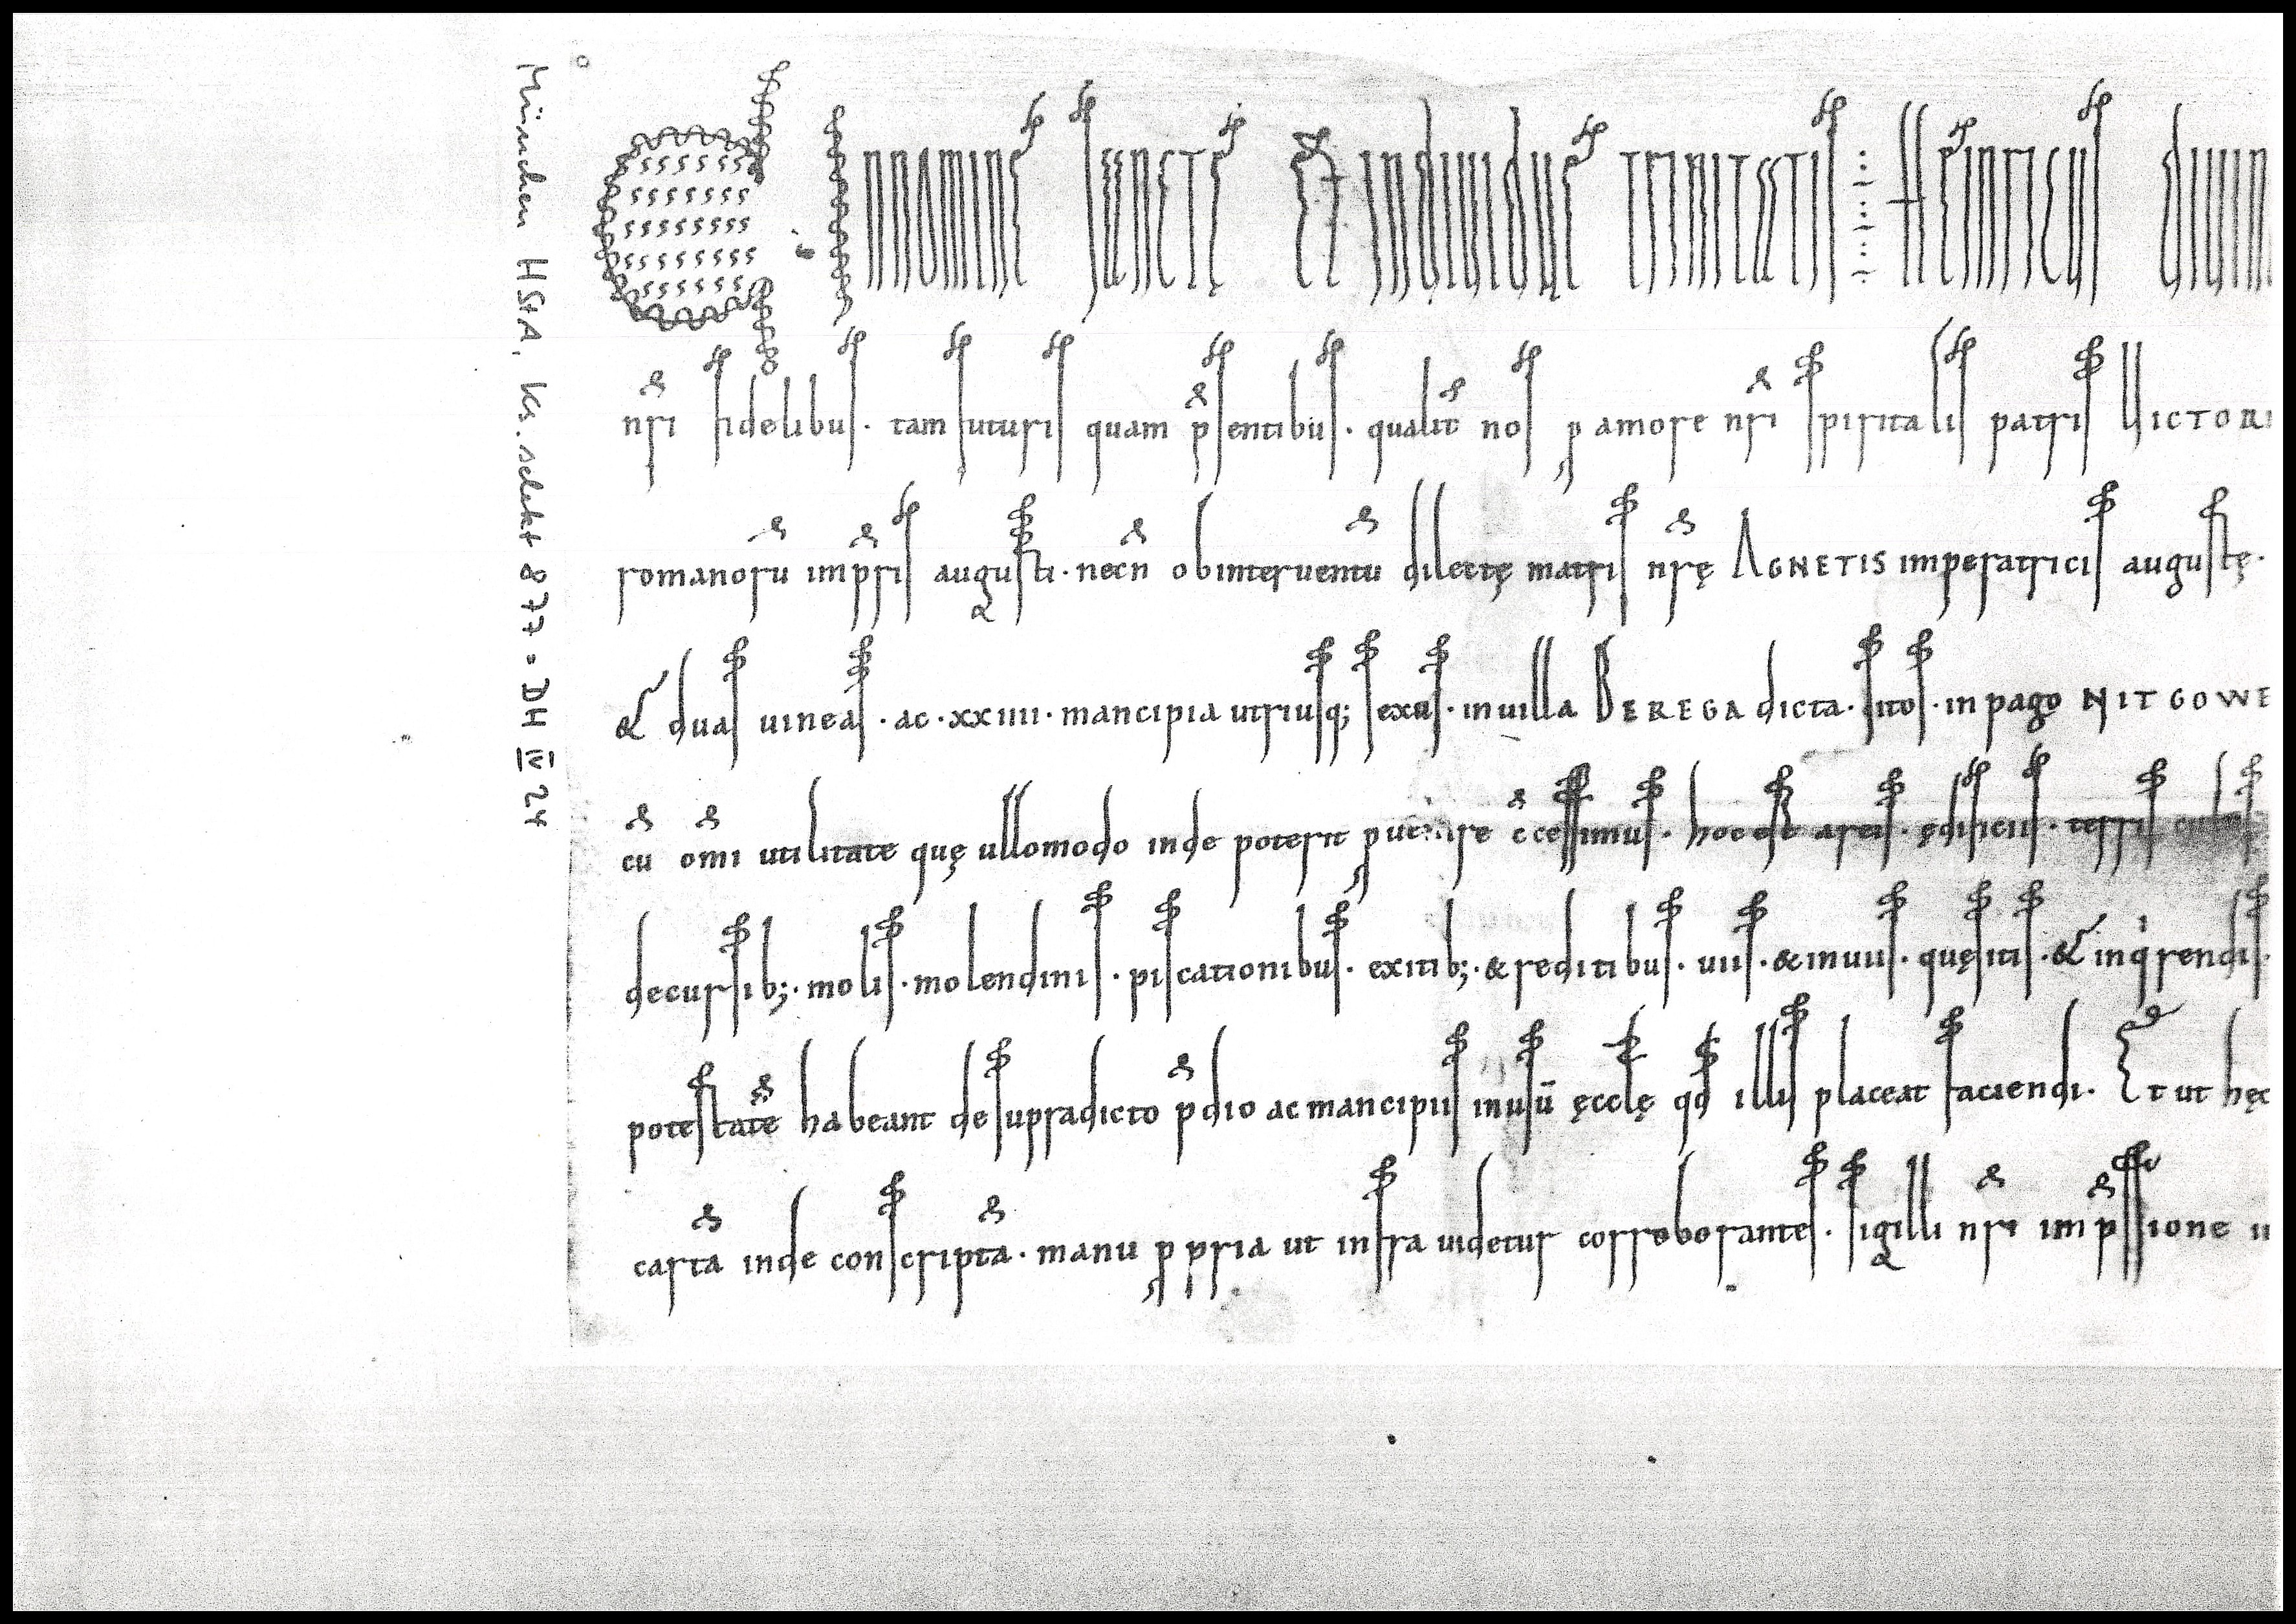 München HStA, Ks. selekt 877 = DH IV 24
IN NOMINE SANCTĘ ET INDIVIDUĘ TRINITATIS HEINRICUS diuin
nr̄i fidelibus · tam futuris quam p̄sentibus · qualit̄ nos ꝑ amore nr̄i spiritalis patris VICTORI
romanorū imp̄ris augusti · necn̄ ob interuentū dilectę matris nr̄ę AGNETIS imperatricis augustę ·
& duas uineas · ac · xxiiii · mancipia utriusq; sexus · in uilla BEREGA dicta · sitos · in pago NITGOWE
cū om̄i utilitate quę ullo modo inde poterit ꝑuenire c̄cessimus · hoc est areis · ędificiis · terris cultis
decursib; · molis · molendinis · piscationibus · exitib; · & reditibus · uiis · & inuiis · quęsitis · & inq̇rendis ·
potestatē habeant de supradicto p̄dio ac mancipiis in usū ęcclę qd illis placeat faciendi · Et ut hęc
carta inde conscripta · manu ꝓpria ut infra uidetur corroborantes · sigilli nr̄i imp̄ssione